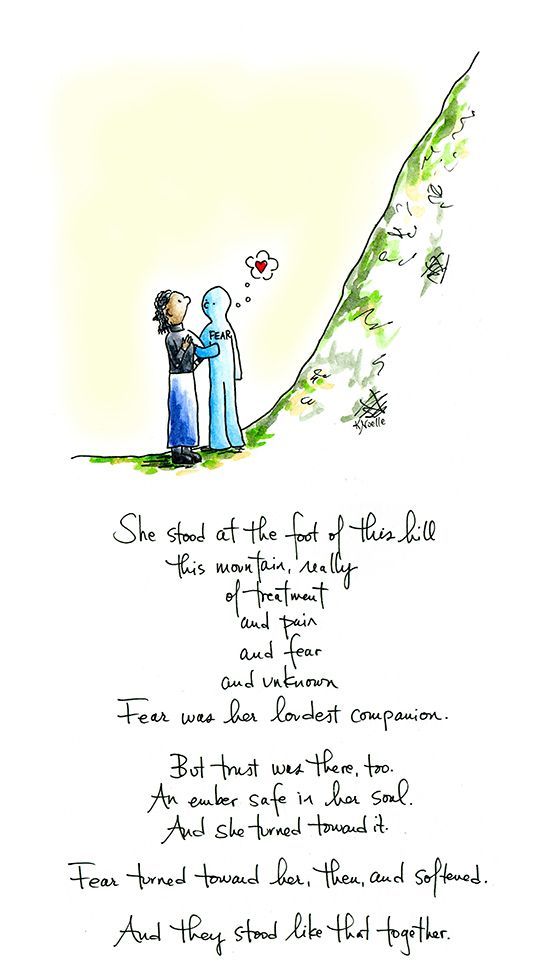 FEAR
K Noelle
She stood at the foot of this hill
this mountain, really
of treatment
and pain
and fear
and unknown
Fear was her loudest companion.
But trust was there, too.
An ember safe in her soul.
And she turned toward it.
Fear turned toward her, then, and softened.
And they stood like that together.